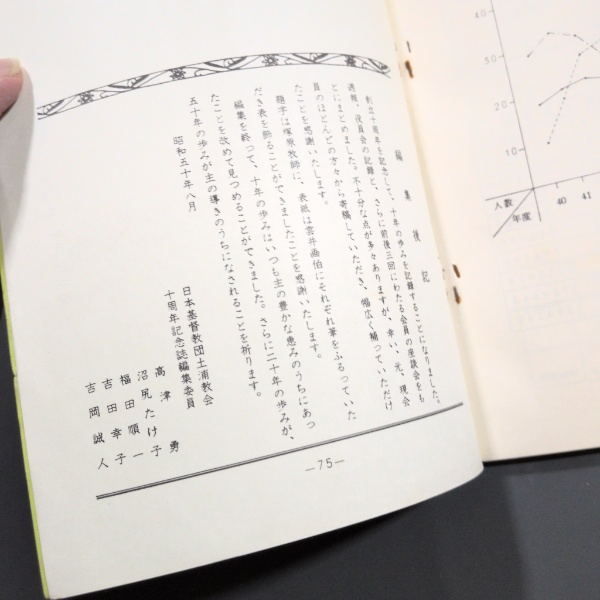 編集後記
創立十周年を記念して、十年の歩みを記録することになりました。
週報、役員会の記録と、さらに前後三回にわたる会員の座談会をも
とにまとめました。不十分な点が多々ありますが、幸い、元、現会
員のほとんどの方々から寄稿していただき、幅広く補っていただけ
たことを感謝いたします。
題字は塚原牧師に、表紙は雲井画伯にそれぞれ筆をふるっていた
だき表を飾ることができましたことを感謝いたします。
編集を終って、十年の歩みはいつも主の豊かな恵みのうちにあっ
たことを改めて見つめることができました。さらに二十年の歩みが、
五十年の歩みが主の導きのうちになされることを祈ります。
昭和五十年八月
日本基督教団土浦教会
十周年記念誌編集委員
高津勇
沼尻たけ子
福田順一
吉田幸子
吉岡誠人
—75—
40
30
20
10
人数
年度
40
41